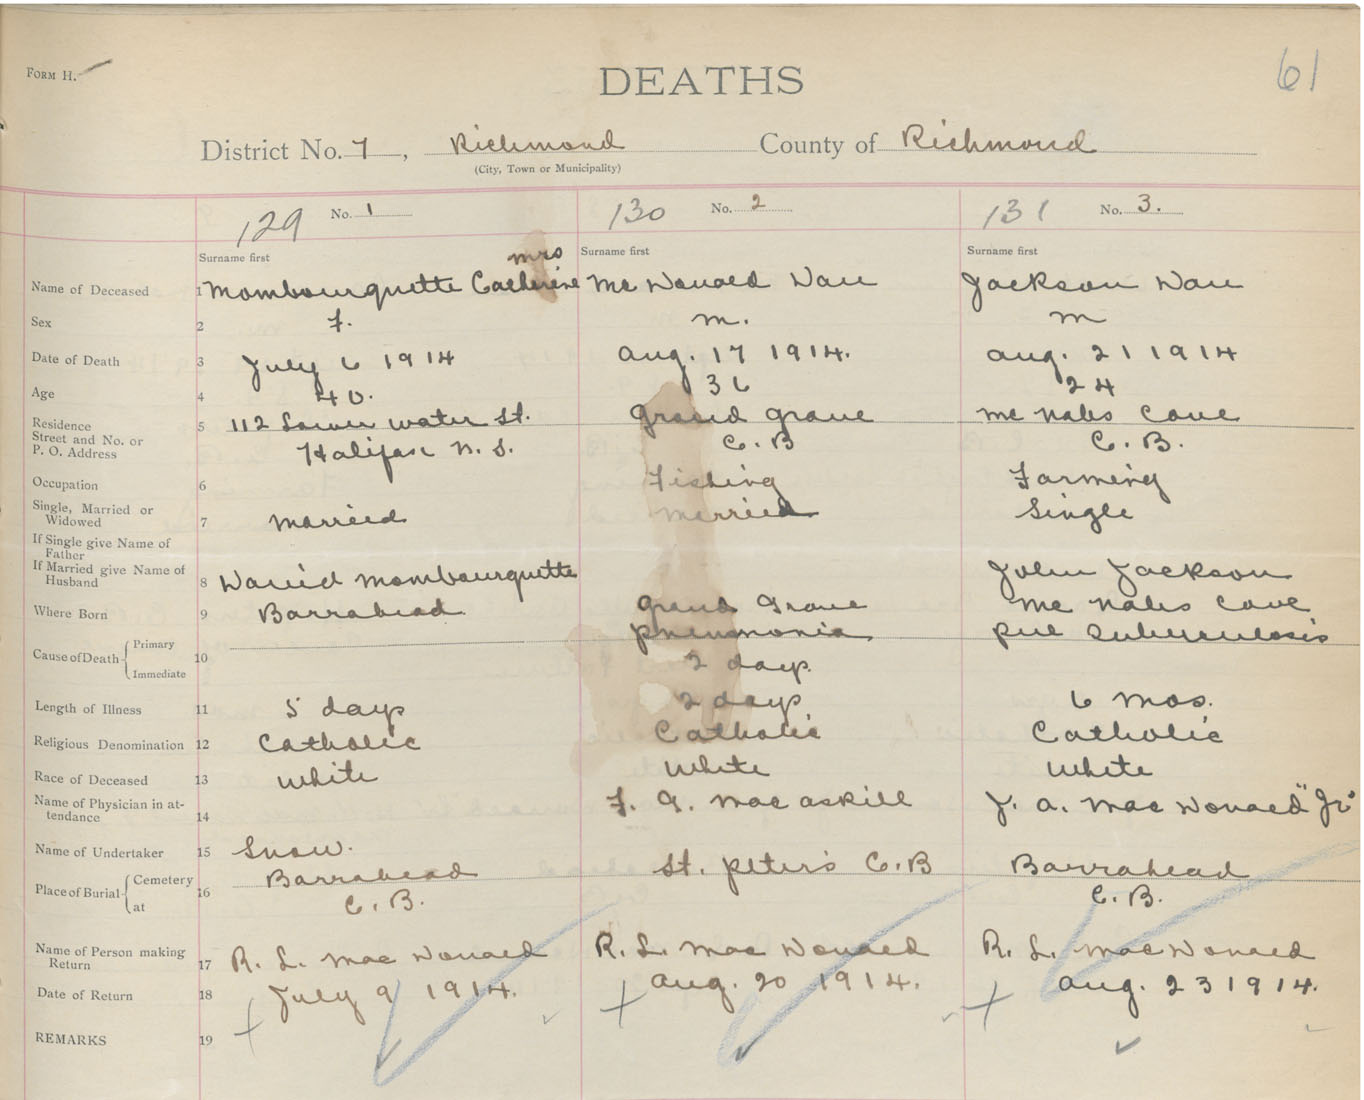 FORM H.
DEATHS
61
District No. 7, Richmond County of Richmond
(City, Town or Municipality)
129 No. 1 130 No. 2 131 No. 3.
Surname first Surname first Surname first
mrs
Name of Deceased 1 Mombourquette Catherine Mc Donald Dan Jackson Dan
Sex 2 F. m. m
Date of Death 3 July 6 1914 Aug. 17 1914. Aug. 21 1914
Age 4 40. 36 24
Residence 5 112 Lower water St. Grand Grave Mc Nabs Cove
Street and No. or
P. O. Address Halifax N. S. C. B C. B.
Occupation 6 Fishing Farming
Single, Married or
Widowed 7 Married Married Single
If Single give Name of
Father
If Married give Name of
Husband 8 David Mombourquette John Jackson
Where Born 9 Barrahead Grand Grave Mc Nabs Cove
Cause of Death Primary Pneumonia Pul Tuberculosis
10 2 days
Immediate
Length of Illness 11 5 days 2 days 6 mos.
Religious Denomination 12 Catholic Catholic Catholic
Race of Deceased 13 White White White
Name of Physician in at-
tendance 14 Mac askill J. A. Mac Donald "Jr"
Name of Undertaker 15 Snow.
Place of Burial Cemetery 16 Barrahead St. Peter's C. B Barrahead
at C. B. C. B.
Name of Person making
Return 17 R. L. Mac Donald R. L. Mac Donald R. L. Mac Donald
Date of Return 18 July 9 1914. Aug. 20 1914. Aug. 23 1914.
REMARKS 19